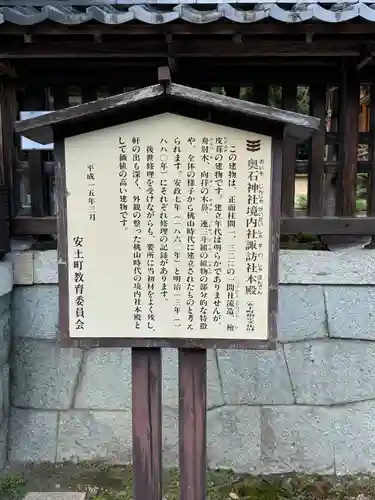 奥石神社境内社諏訪社本殿
この建物は、正面柱間一・三二mの一間社流造、檜
皮葺の建物です。建立年代は明らかでありませんが
舟肘木、向拝の木鼻、連三斗組の組物の部分的な特徴
や、全体の様子から桃山時代に建立されたものと考え
られます。安政七年(一八六〇年)と明治一三年(一
八八〇年)にそれぞれ修理の記録があります。
後世修理を受けながらも、要所に当初材をよく残し、
軒の出も深く、外観の整った桃山時代の境内社本殿と
して価値の高い建物です。
平成一五年二月
安土町教育委員会